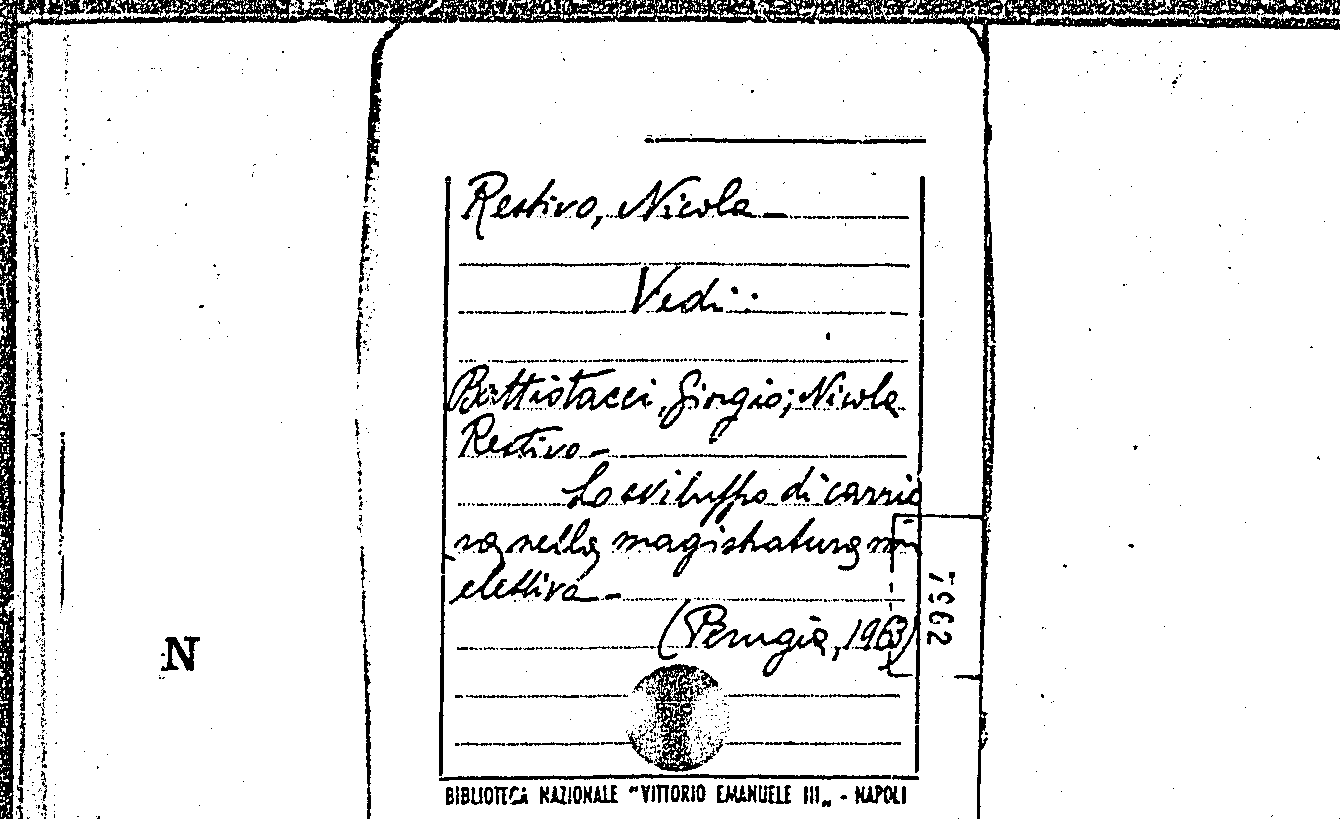 Restivo, Nicola –
Vedi:
Battistacci, Giorgio; Nicola
Restivo –
Lo sviluppo di carrie
ra nella magistratura non
elettiva –
(Perugia, 1963)
7962
N
BIBLIOTECA NAZIONALE "VITTORIO EMANUELE III„ - NAPOLI